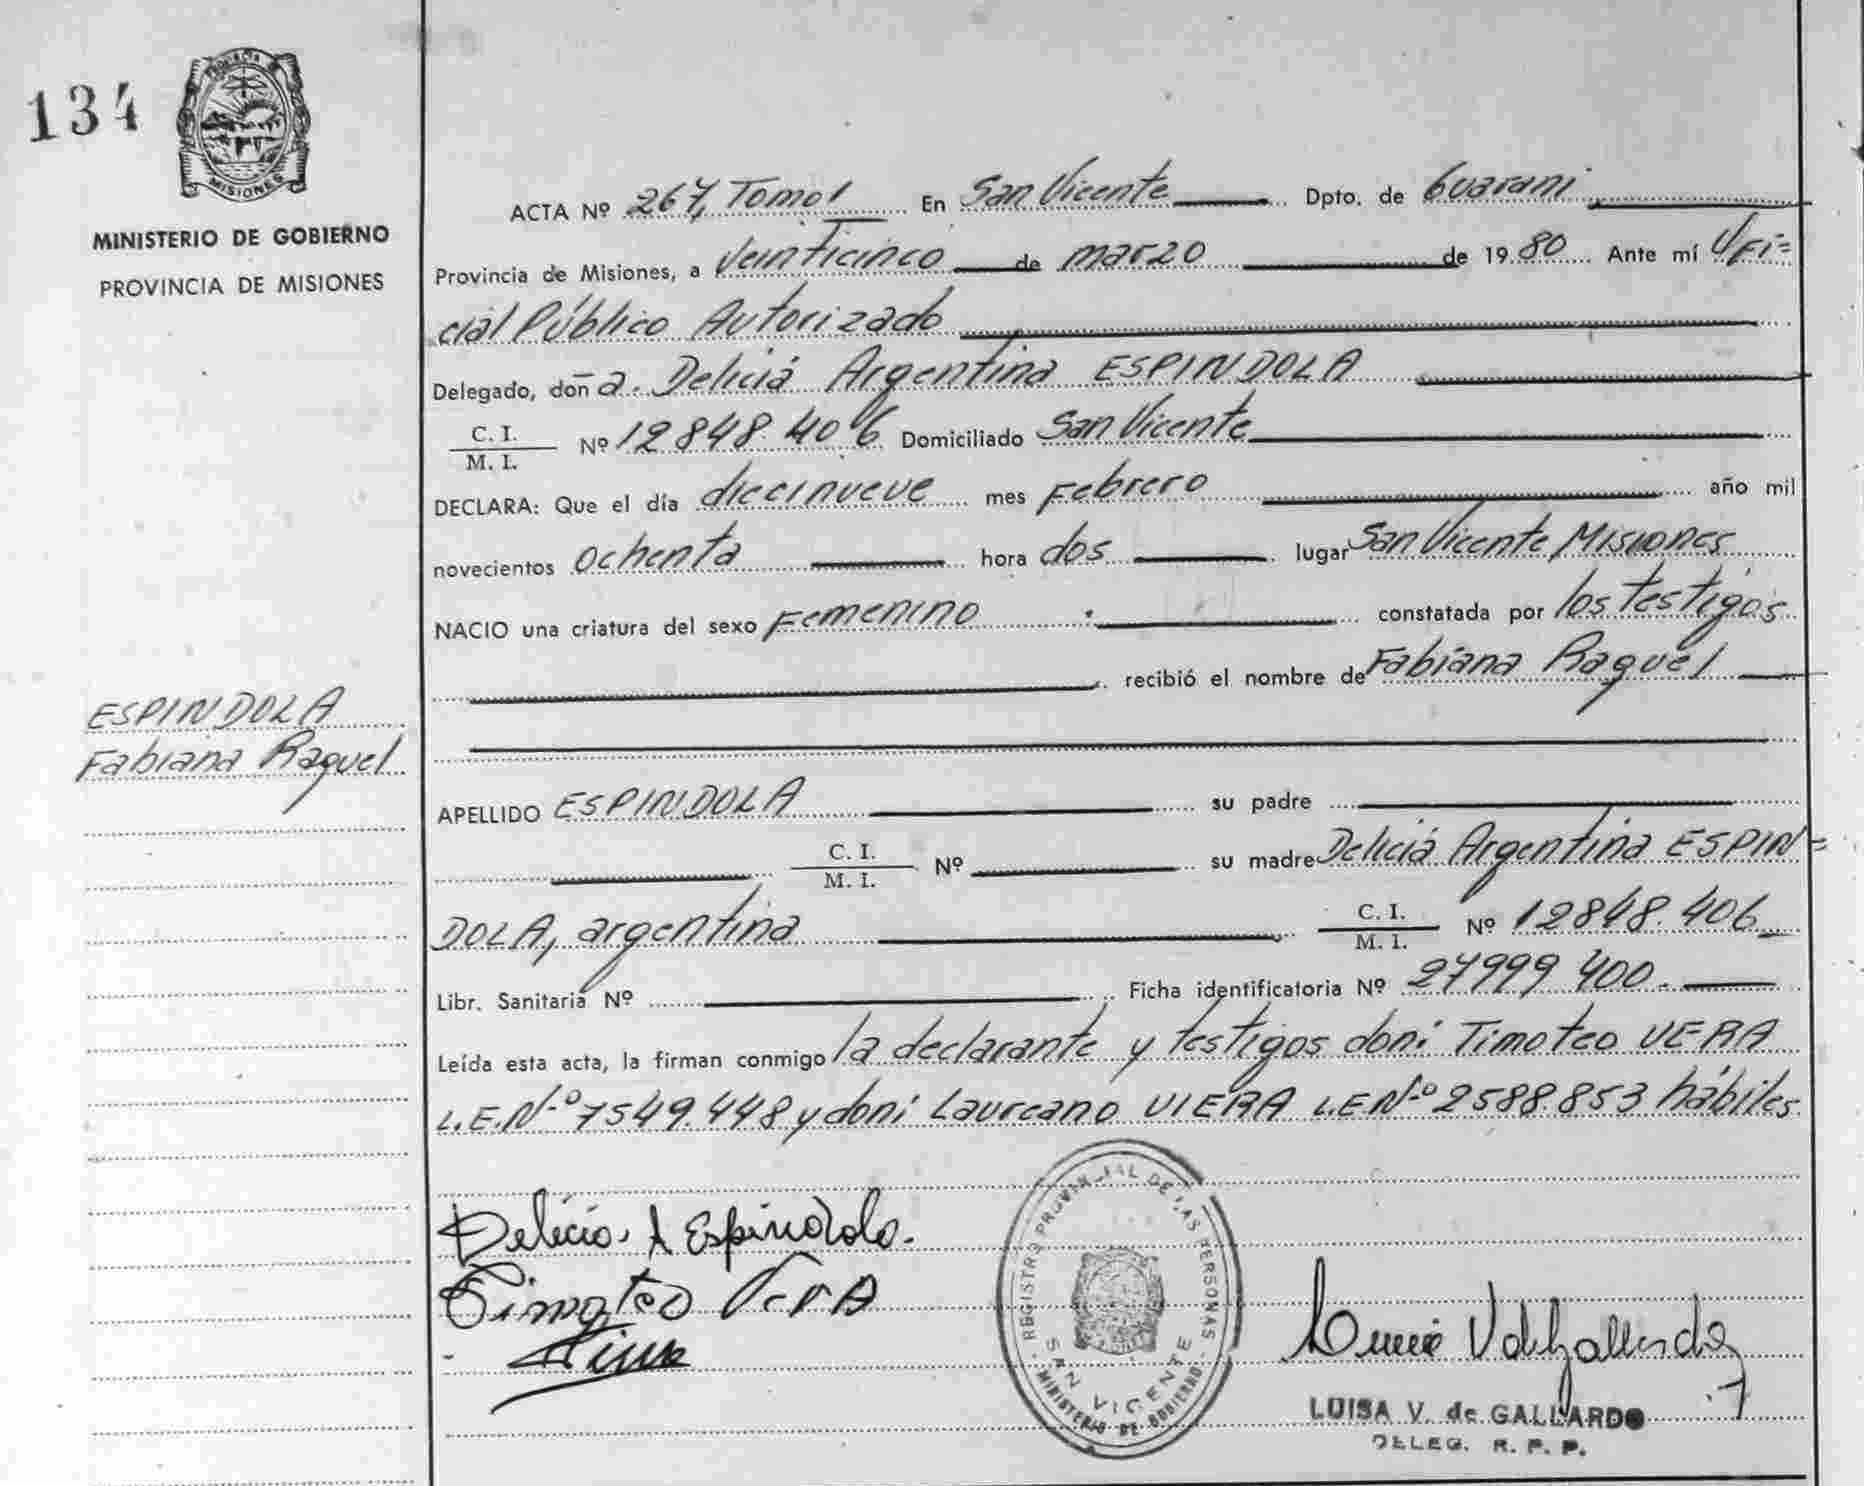 134
PROVINCIA DE
MISIONES
MINISTERIO DE GOBIERNO
PROVINCIA DE MISIONES
ESPINDOLA
Fabiana Raquel
ACTA Nº 267, Tomo I En San Vicente Dpto. de Guarani
Provincia de Misiones, a Veinticinco de marzo de 1980 Ante mí Ofi=
cial Público Autorizado
Delegado, doña. Deliciá Argentina ESPINDOLA
C. I.
M. I. Nº 12848.406 Domiciliado San Vicente
DECLARA: Que el día diecinueve mes Febrero año mil
novecientos ochenta hora dos lugar San Vicente Misiones
NACIO una criatura del sexo Femenino constatada por los testigos
recibió el nombre de Fabiana Raquel
APELLIDO ESPINDOLA su padre
C. I.
M. I. Nº su madre Deliciá Argentina ESPIN=
DOLA, argentina C. I.
M. I. Nº 12848.406
Libr. Sanitaria Nº Ficha identificatoria Nº 27999 400.
Leída esta acta, la firman conmigo la declarante y testigos don: Timoteo VERA
L.E.Nº 7549.448 y don: Laureano VIERA L.E.Nº 2588.853 hábiles
Delicia. A Espindola.
Timoteo Vera
REGISTRO PROVINCIAL DE LAS PERSONAS
SAN VICENTE
MINISTERIO DE GOBIERNO
LUISA V. de GALLARDO
DELEG. R. P. P.